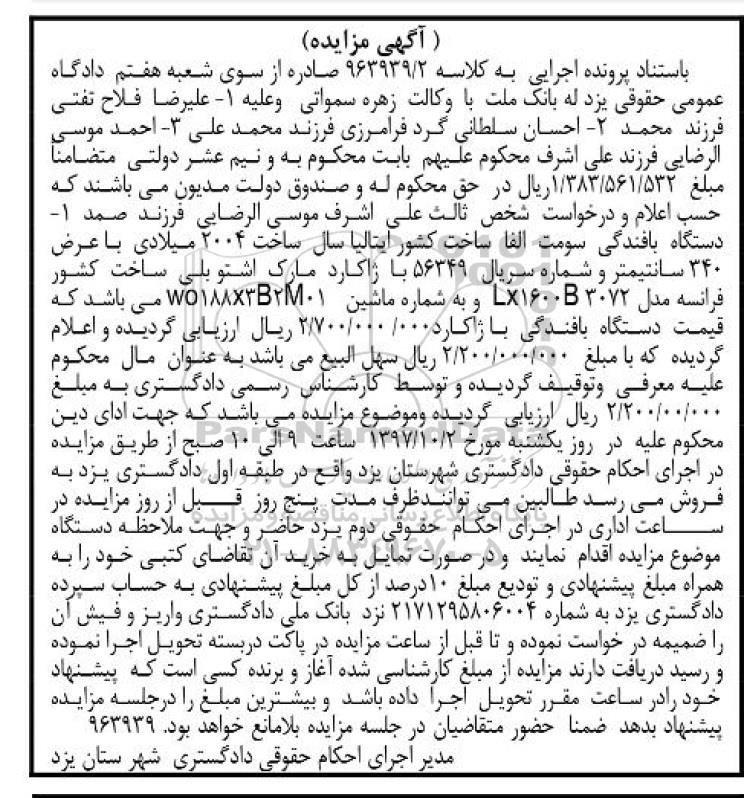 ( آگهی مزایده)
باستناد پرونده اجرایی به کلاسه ۹۶۳۹۳۹/۲ صادره از سوی شعبه هفتم دادگاه
عمومی حقوقی یزد له بانک ملت با وکالت زهره سمواتی وعلیه ۱- علیرضا فلاح تفتی
فرزند محمد ۲- احسان سلطانی گرد فرامرزی فرزند محمد علی ۳- احمد موسی
الرضایی فرزند علی اشرف محکوم علیهم بابت محکوم به و نیم عشر دولتی متضامناً
مبلغ ۱/۳۸۳/۵۶۱/۵۳۲ریال در حق محکوم له و صندوق دولت مدیون می باشند که
حسب اعلام و درخواست شخص ثالث علی اشرف موسی الرضایی فرزند صمد ۱-
دستگاه بافندگی سومت الفا ساخت کشور ایتالیا سال ساخت ۲۰۰۴ میلادی با عرض
۳۴۰ سانتیمتر و شماره سریال ۵۶۳۴۹ با ژاکارد مارک اشتو بلی ساخت کشور
فرانسه مدل Lx۱۶۰۰B ۳۰۷۲ و به شماره ماشین wo۱۸۸x۳B۲M۰۱ می باشد که
قیمت دستگاه بافندگی با ژاکارد۲/۷۰۰/۰۰۰/۰۰۰ ریال ارزیابی گردیده و اعلام
گردیده که با مبلغ ۲/۲۰۰/۰۰۰/۰۰۰ ریال سهل البیع می باشد به عنوان مال محکوم
علیه معرفی وتوقیف گردیده و توسط کارشناس رسمی دادگستری به مبلغ
۲/۲۰۰/۰۰/۰۰۰ ریال ارزیابی گردیده وموضوع مزایده می باشد که جهت ادای دین
محکوم علیه در روز یکشنبه مورخ ۱۳۹۷/۱۰/۲ ساعت ۹الی ۱۰ صبح از طریق مزایده
در اجرای احکام حقوقی دادگستری شهرستان یزد واقع در طبقه اول دادگستری یزد به
فروش می رسد طالبین می توانندظرف مدت پنج روز قبل از روز مزایده در
ساعت اداری در اجرای احکام حقوقی دوم یزد حاضر و جهت ملاحظه دستگاه
موضوع مزایده اقدام نمایند و در صورت تمایل به خرید آن تقاضای کتبی خود را به
همراه مبلغ پیشنهادی و تودیع مبلغ ۱۰درصد از کل مبلغ پیشنهادی به حساب سپرده
دادگستری یزد به شماره ۲۱۷۱۲۹۵۸۰۶۰۰۴ نزد بانک ملی دادگستری واریز و فیش آن
را ضمیمه در خواست نموده و تا قبل از ساعت مزایده در پاکت دربسته تحویل اجرا نموده
و رسید دریافت دارند مزایده از مبلغ کارشناسی شده آغاز و برنده کسی است که پیشنهاد
خود رادر ساعت مقرر تحویل اجرا داده باشد و بیشترین مبلغ را درجلسه مزایده
پیشنهاد بدهد ضمنا حضور متقاضیان در جلسه مزایده بلامانع خواهد بود. ۹۶۳۹۳۹
مدیر اجرای احکام حقوقی دادگستری شهر ستان یزد